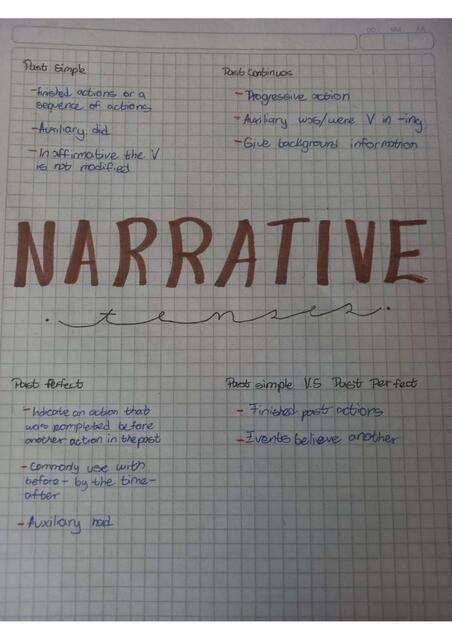 Past Simple
-finished actions or a
sequence of actions
-Auxiliary did
-In affirmative the V
is not modified
Past Continuos
- Progressive action
- Auxiliary was/were V in -ing
- Give background information
NARRATIVE
tenses
Past Perfect
-Indicate an action that
was completed before
another action in the past
-commonly use with
before - by the time -
after
- Auxiliary had
Past simple V.S Past Perfect
- Finished past actions
- Events believe another